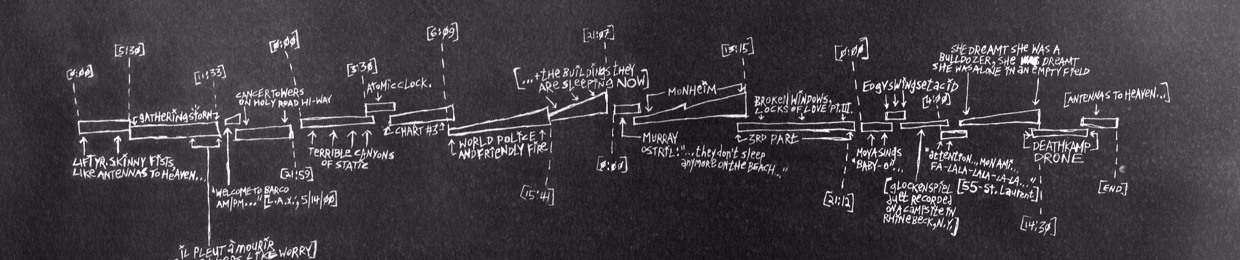 [0:00]
[5:30]
[11:33]
GATHERING STORM
LIFT YR. SKINNY FISTS
LIKE ANTENNAS TO HEAVEN...
"WELCOME TO BARCO
AM/PM..." [L.A.X., 5/14/00]
iL PLEUT à MOURIR
LIKE WORRY]
CANCER TOWERS
ON HOLY ROAD HI-WAY
[21:59]
[0:00]
TERRIBLE CANYONS
OF STATIC
[3:30]
ATOMIC CLOCK.
CHART #3
[6:09]
WORLD POLICE
AND FRIENDLY FIRE
[15:41]
[...+THE BUILDINGS THEY
ARE SLEEPING NOW]
[21:07]
[0:00]
MURRAY
OSTRIL: "...they don't sleep
anymore on the beach..."
MONHEIM
[13:15]
BROKEN WINDOWS,
LOCKS OF LOVE PT. III.
3RD PART
[21:12]
[0:00]
MOYA SINGS
"BABY-O"...
EDGYSWINGSETACID
[glockenspiel
duet recorded
on a campsite in
RHINEBECK, N.Y.]
[4:00]
"attention...mon ami...
FA-LALA-LALA-LA-LA..."
[55-St. Laurent]
SHE DREAMT SHE WAS A
BULLDOZER, SHE DREAMT
SHE WAS ALONE IN AN EMPTY FIELD
[14:30]
DEATHKAMP
DRONE
[ANTENNAS TO HEAVEN...]
[END]